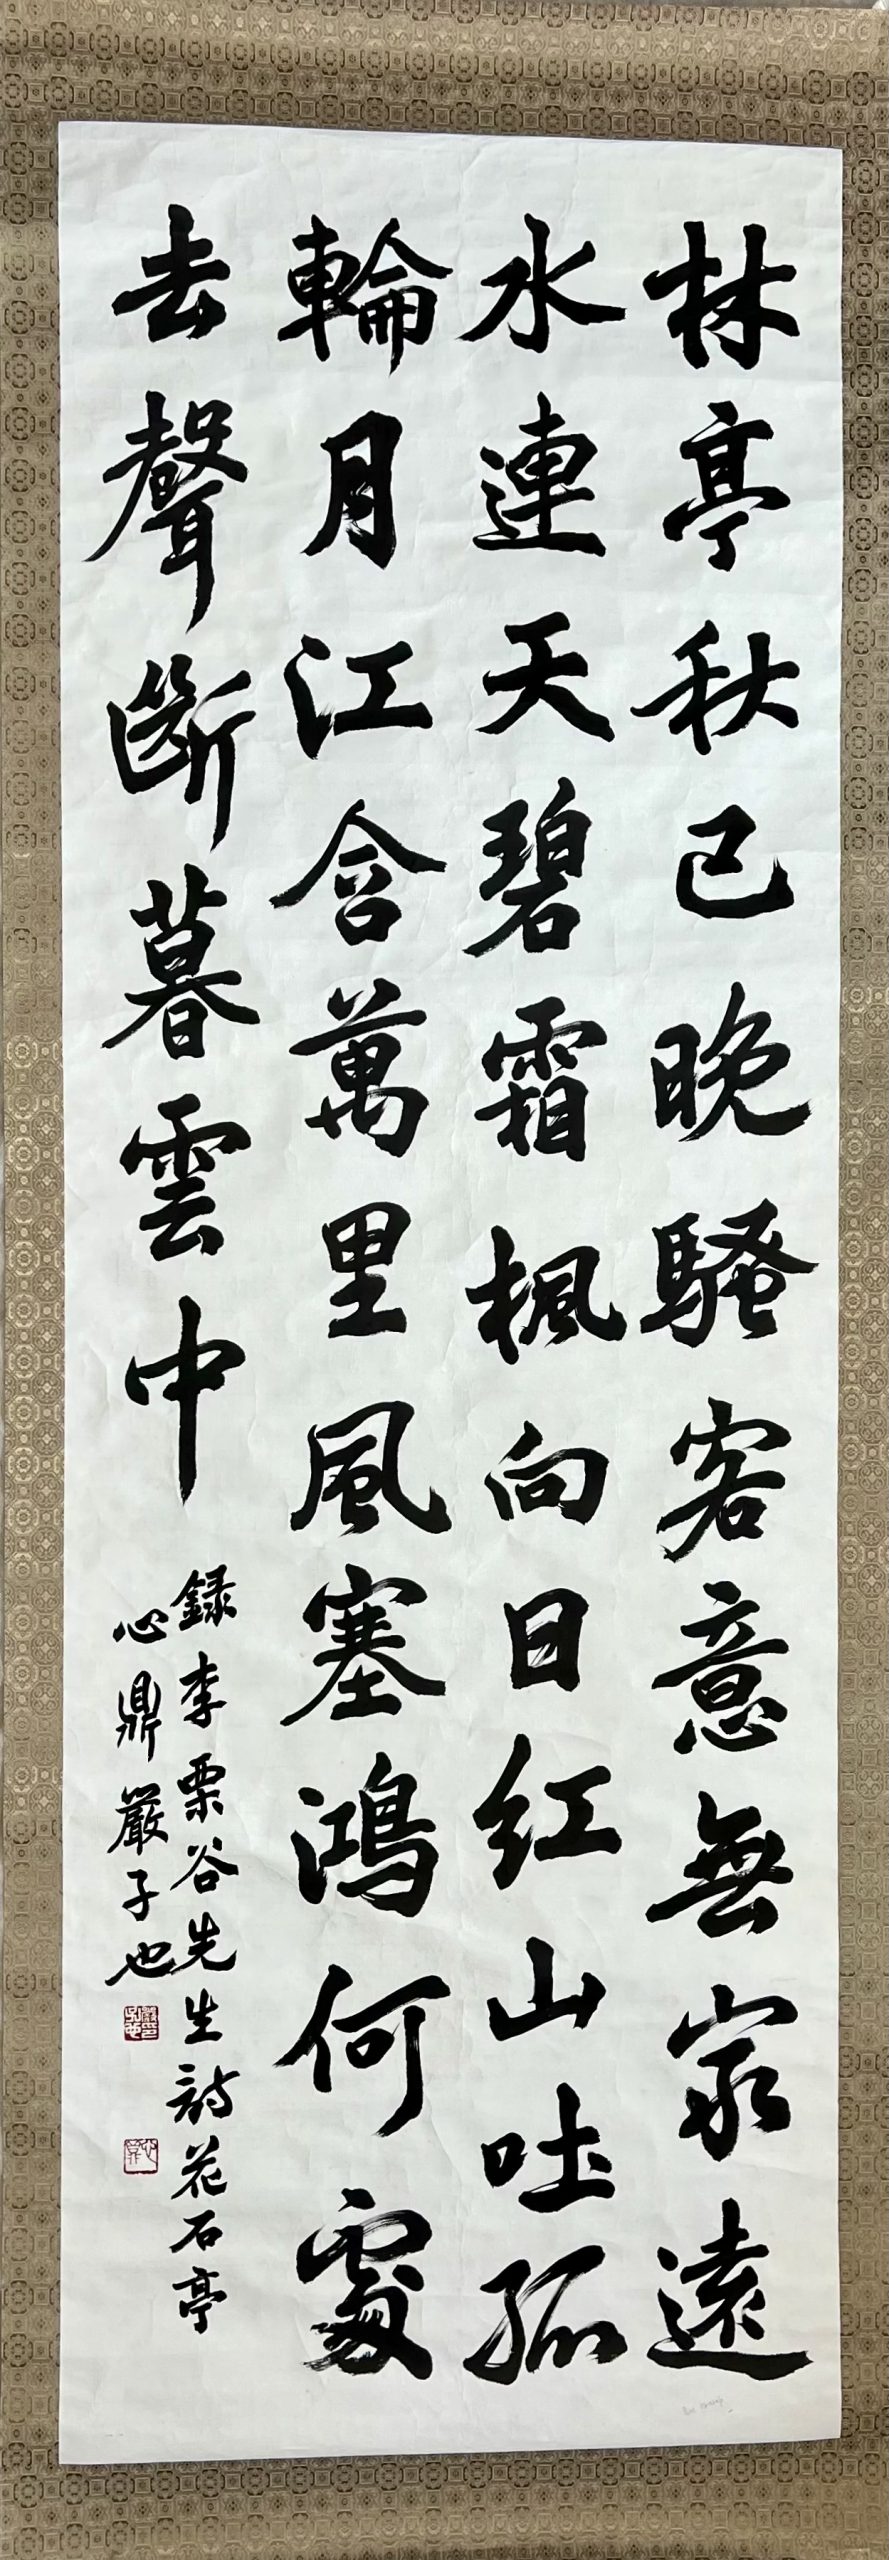 林亭秋已晚騷客意無家遠
水連天碧霜楓向日紅山吐孤
輪月江含萬里風塞鴻何處
去聲斷暮雲中
録李栗谷先生詩花石亭
心鼎嚴子也